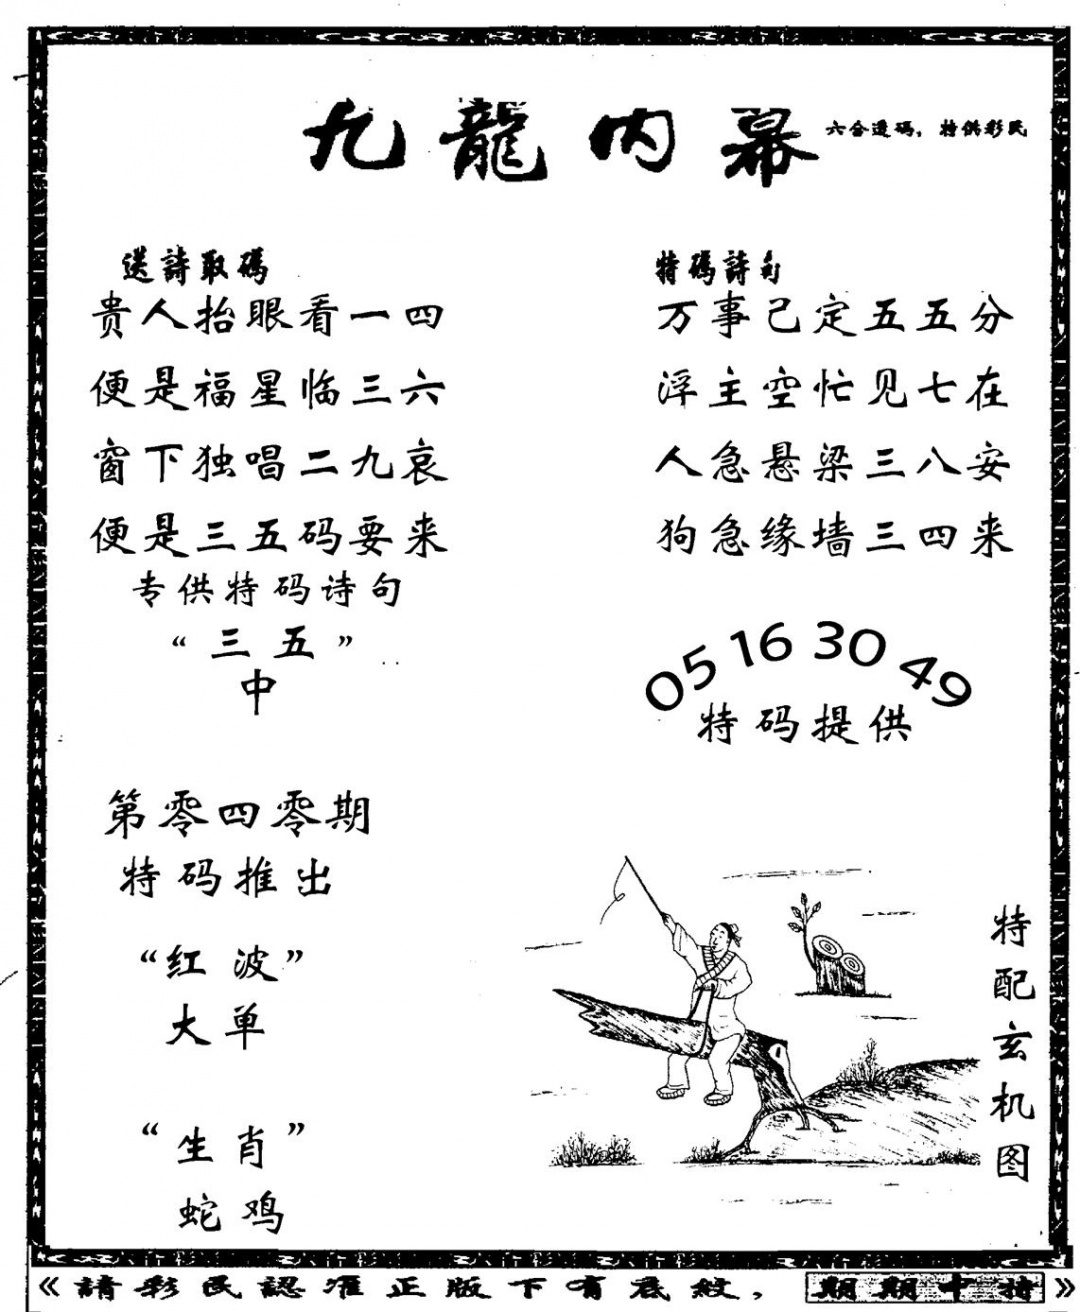 九龍内幕
六合透码，特供彩民
送詩取碼
贵人抬眼看一四
便是福星临三六
窗下独唱二九哀
便是三五码要来
专供特码诗句
“三五”
中
特碼詩句
万事己定五五分
浮主空忙见七在
人急悬梁三八安
狗急缘墙三四来
05 16 30 49
特码提供
第零四零期
特码推出
“红波”
大单
“生肖”
蛇鸡
特配玄机图
《請彩民認准正版下有底紋，期期中特》